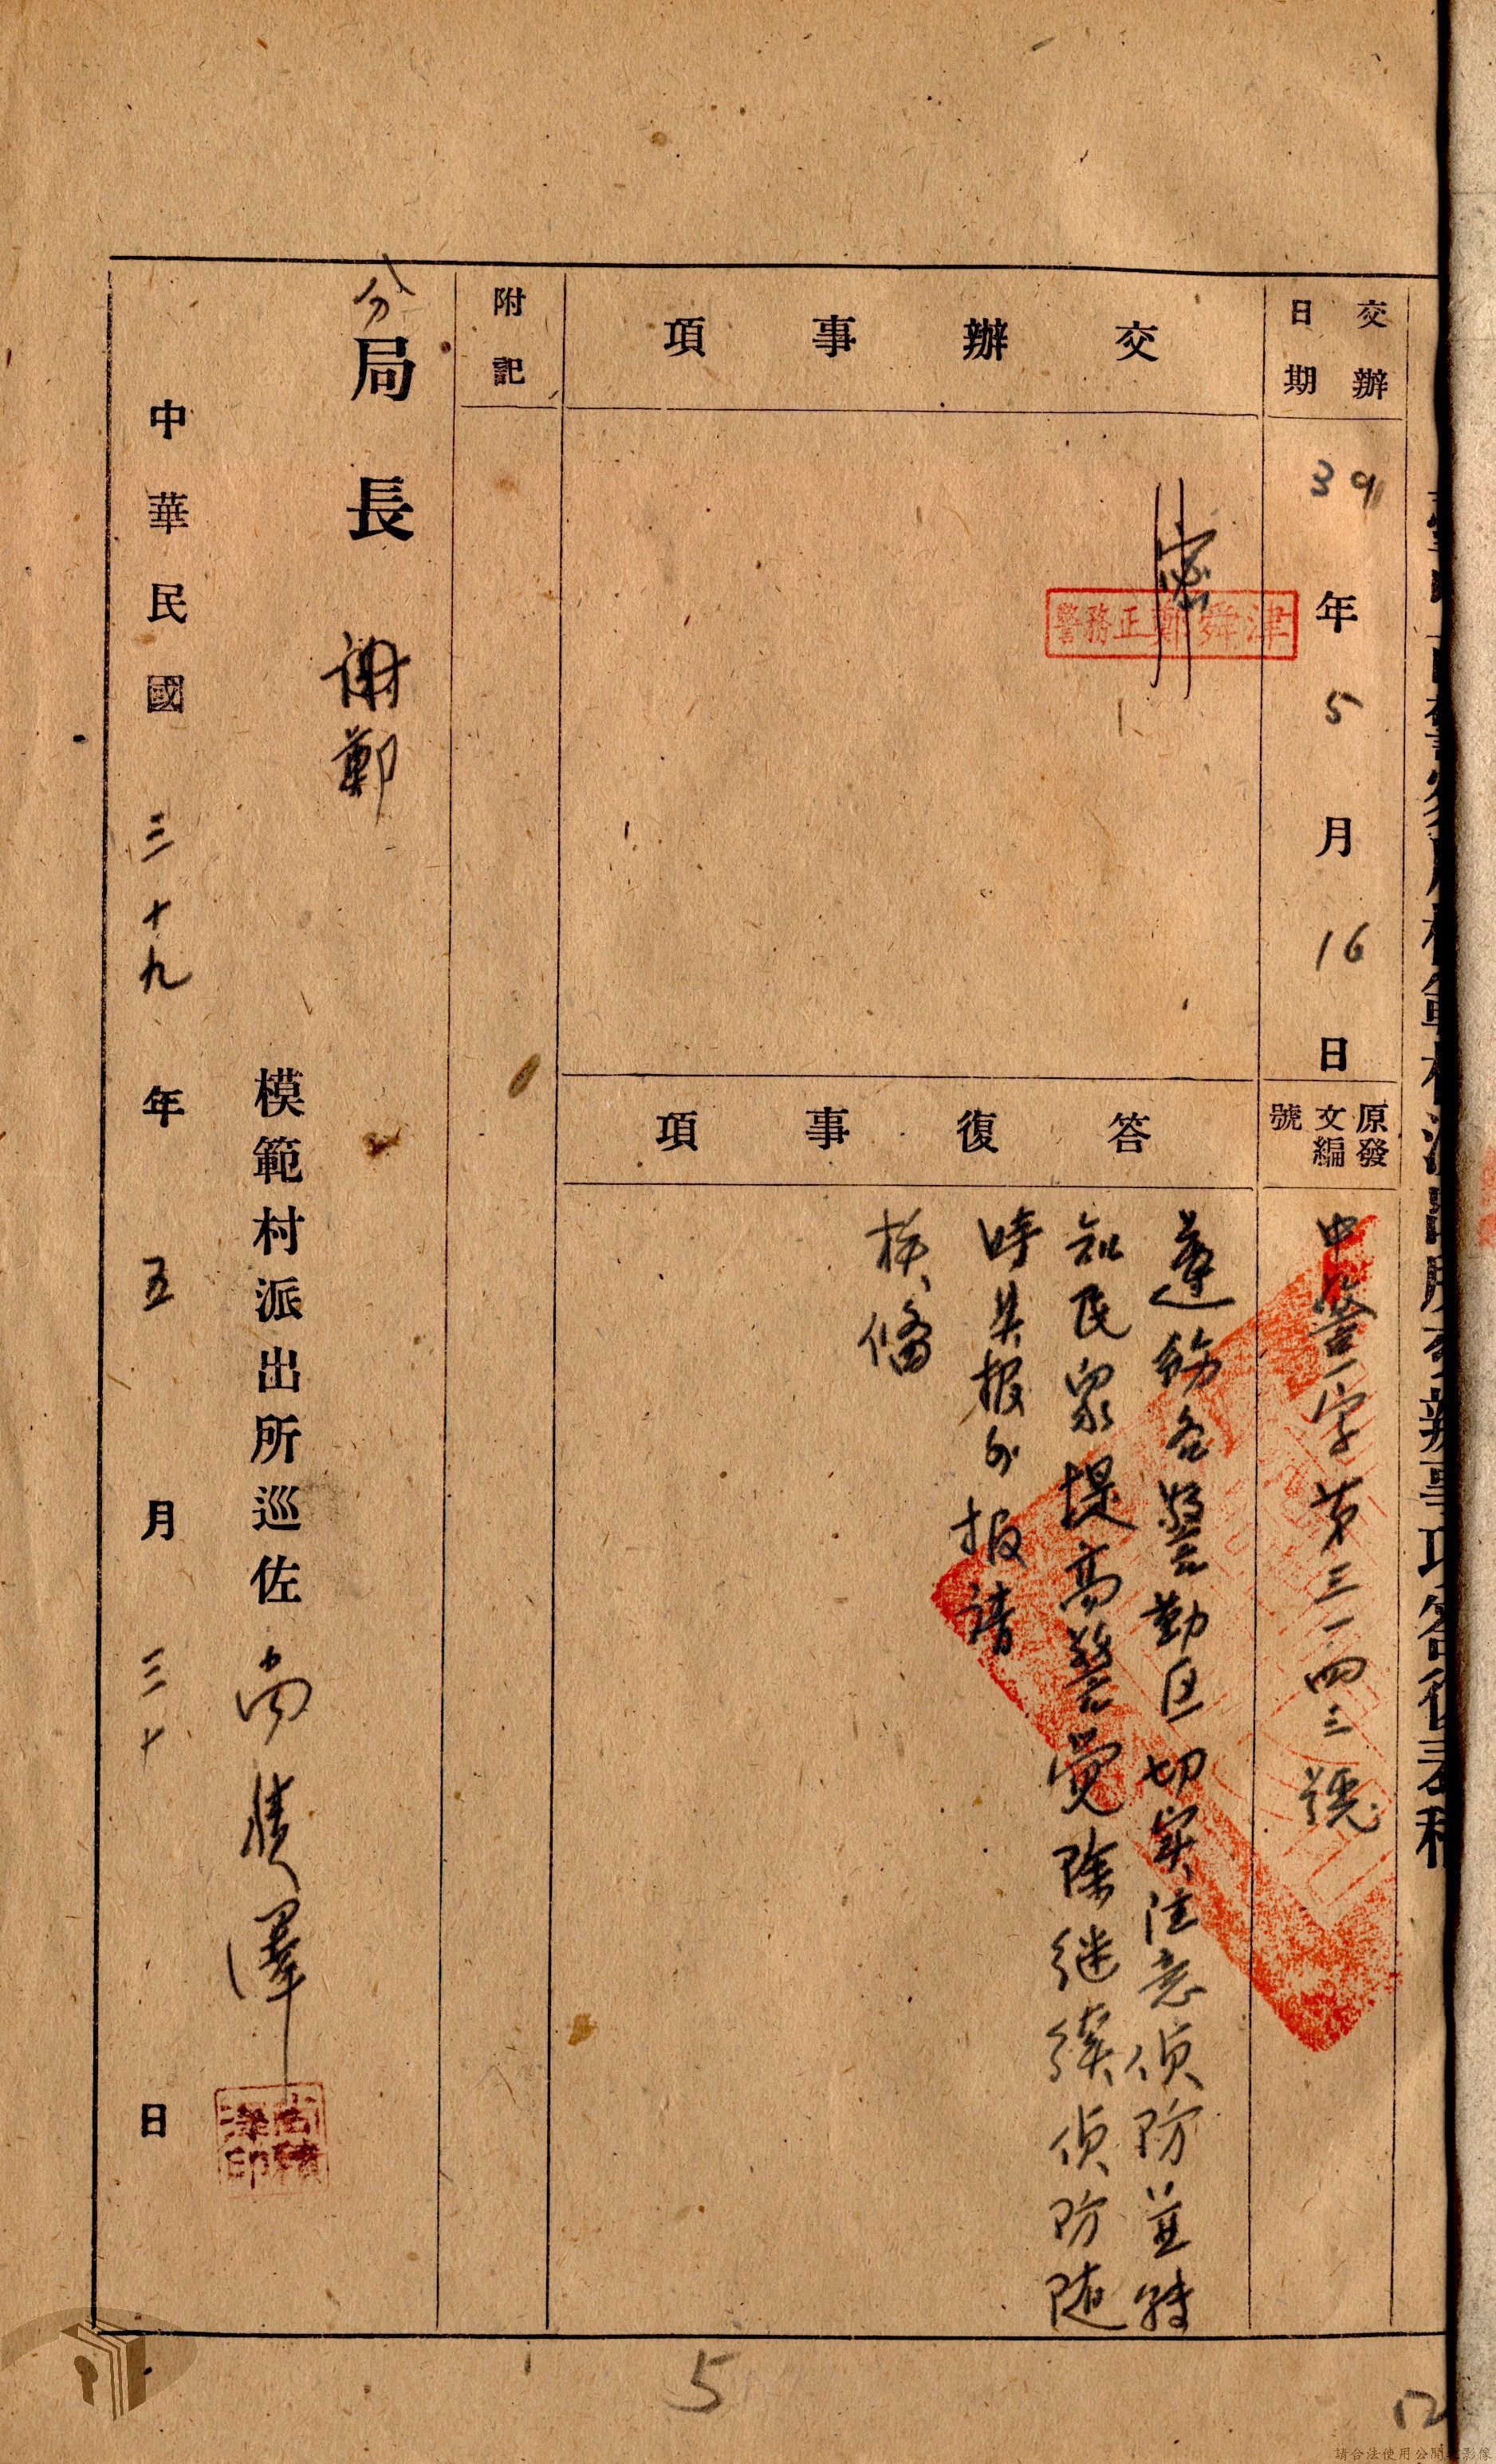 交辦日期
39年5月16日
原發文編號
中警一字第三一四三號
交辦事項
密
警務正鄭舜津
答復事項
遵飭各警勤区切实注意偵防並轉
知民眾提高警覺除继續偵防随
時具报外报請
核備
附記
分局長 謝鄭
模範村派出所巡佐 尚
中華民國三十九年五月三十日
5
12
請合法使用公開影像